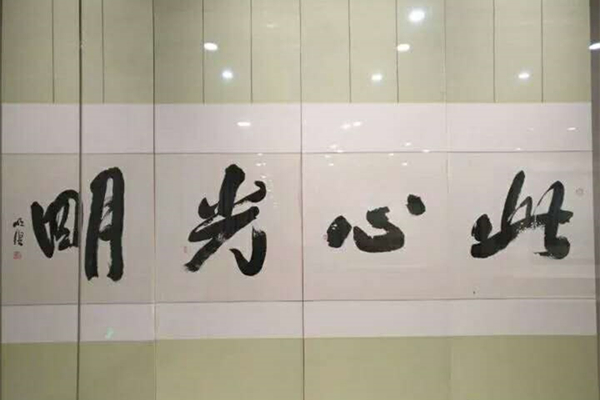 此心光明